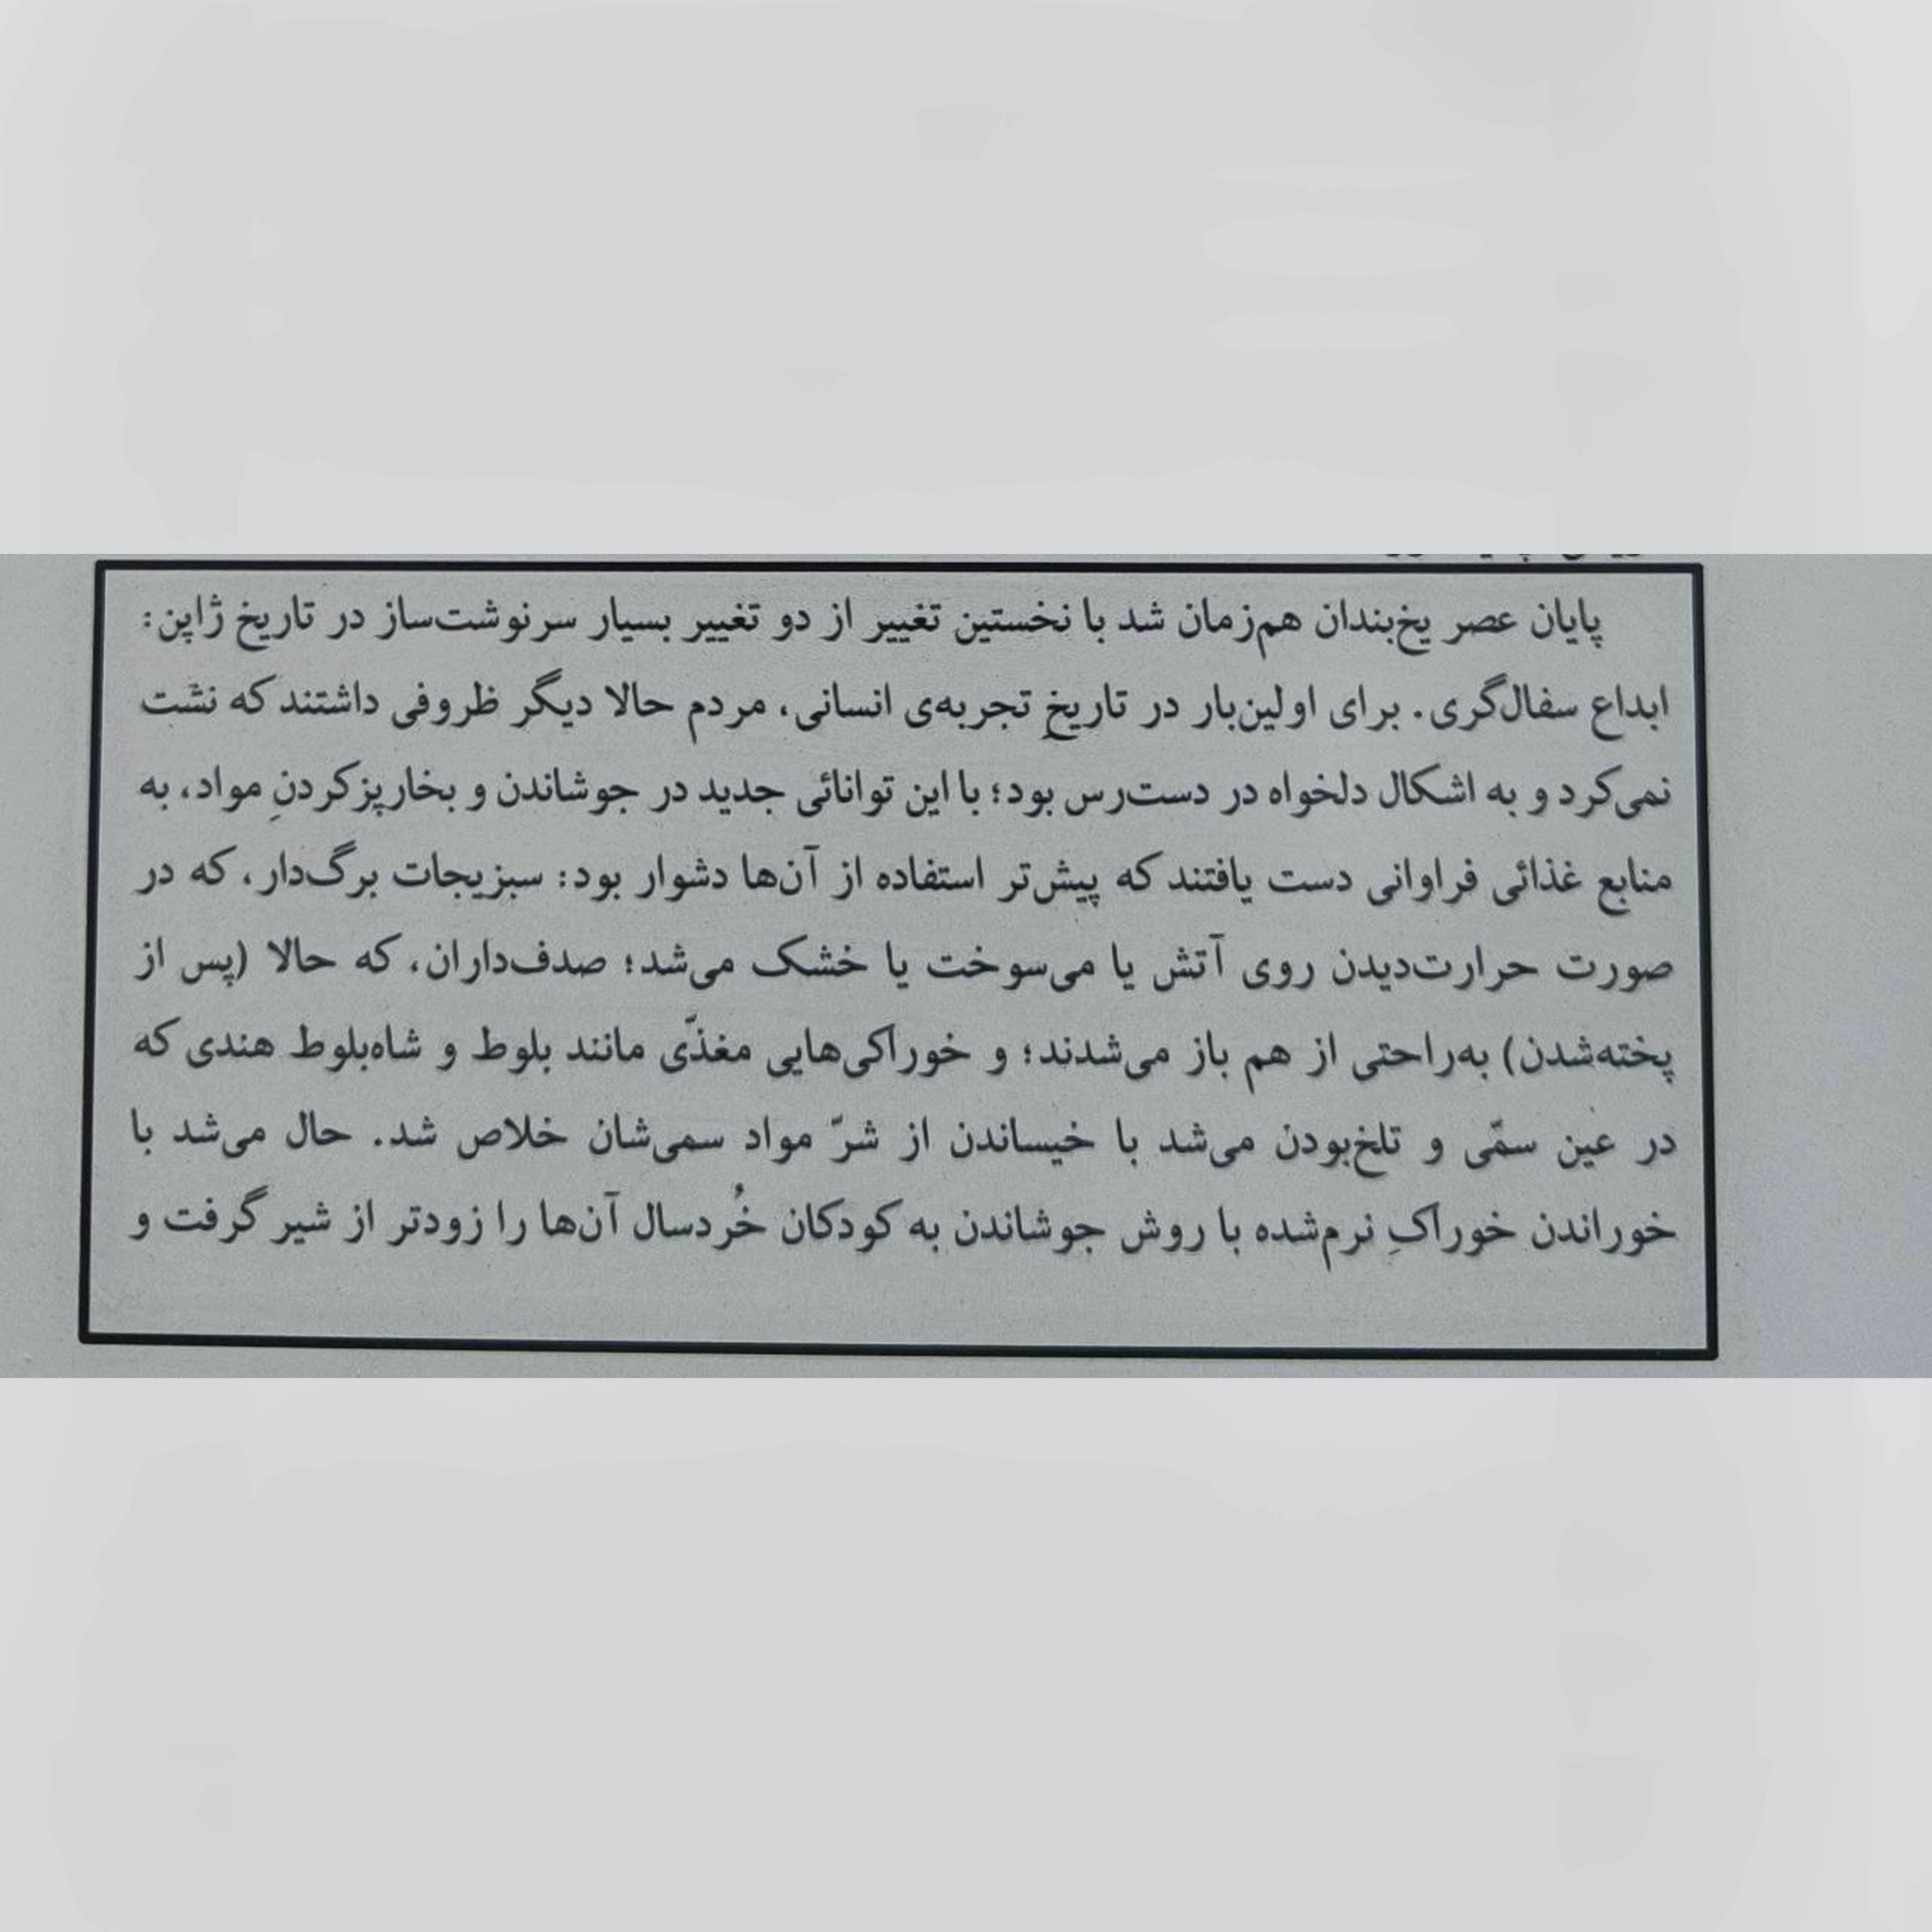 پایان عصر یخ‌بندان هم‌زمان شد با نخستین تغییر از دو تغییر بسیار سرنوشت‌ساز در تاریخ ژاپن:
ابداع سفال‌گری. برای اولین‌بار در تاریخِ تجربه‌ی انسانی، مردم حالا دیگر ظروفی داشتند که نشت
نمی‌کرد و به اشکال دلخواه در دست‌رس بود؛ با این توانائی جدید در جوشاندن و بخارپزکردنِ مواد، به
منابع غذائی فراوانی دست یافتند که پیش‌تر استفاده از آن‌ها دشوار بود: سبزیجات برگ‌دار، که در
صورت حرارت‌دیدن روی آتش یا می‌سوخت یا خشک می‌شد؛ صدف‌داران، که حالا (پس از
پخته‌شدن) به‌راحتی از هم باز می‌شدند؛ و خوراکی‌هایی مغذّی مانند بلوط و شاه‌بلوط هندی که
در عین سمّی و تلخ‌بودن می‌شد با خیساندن از شرّ مواد سمی‌شان خلاص شد. حال می‌شد با
خوراندن خوراکِ نرم‌شده با روش جوشاندن به کودکان خُردسال آن‌ها را زودتر از شیر گرفت و